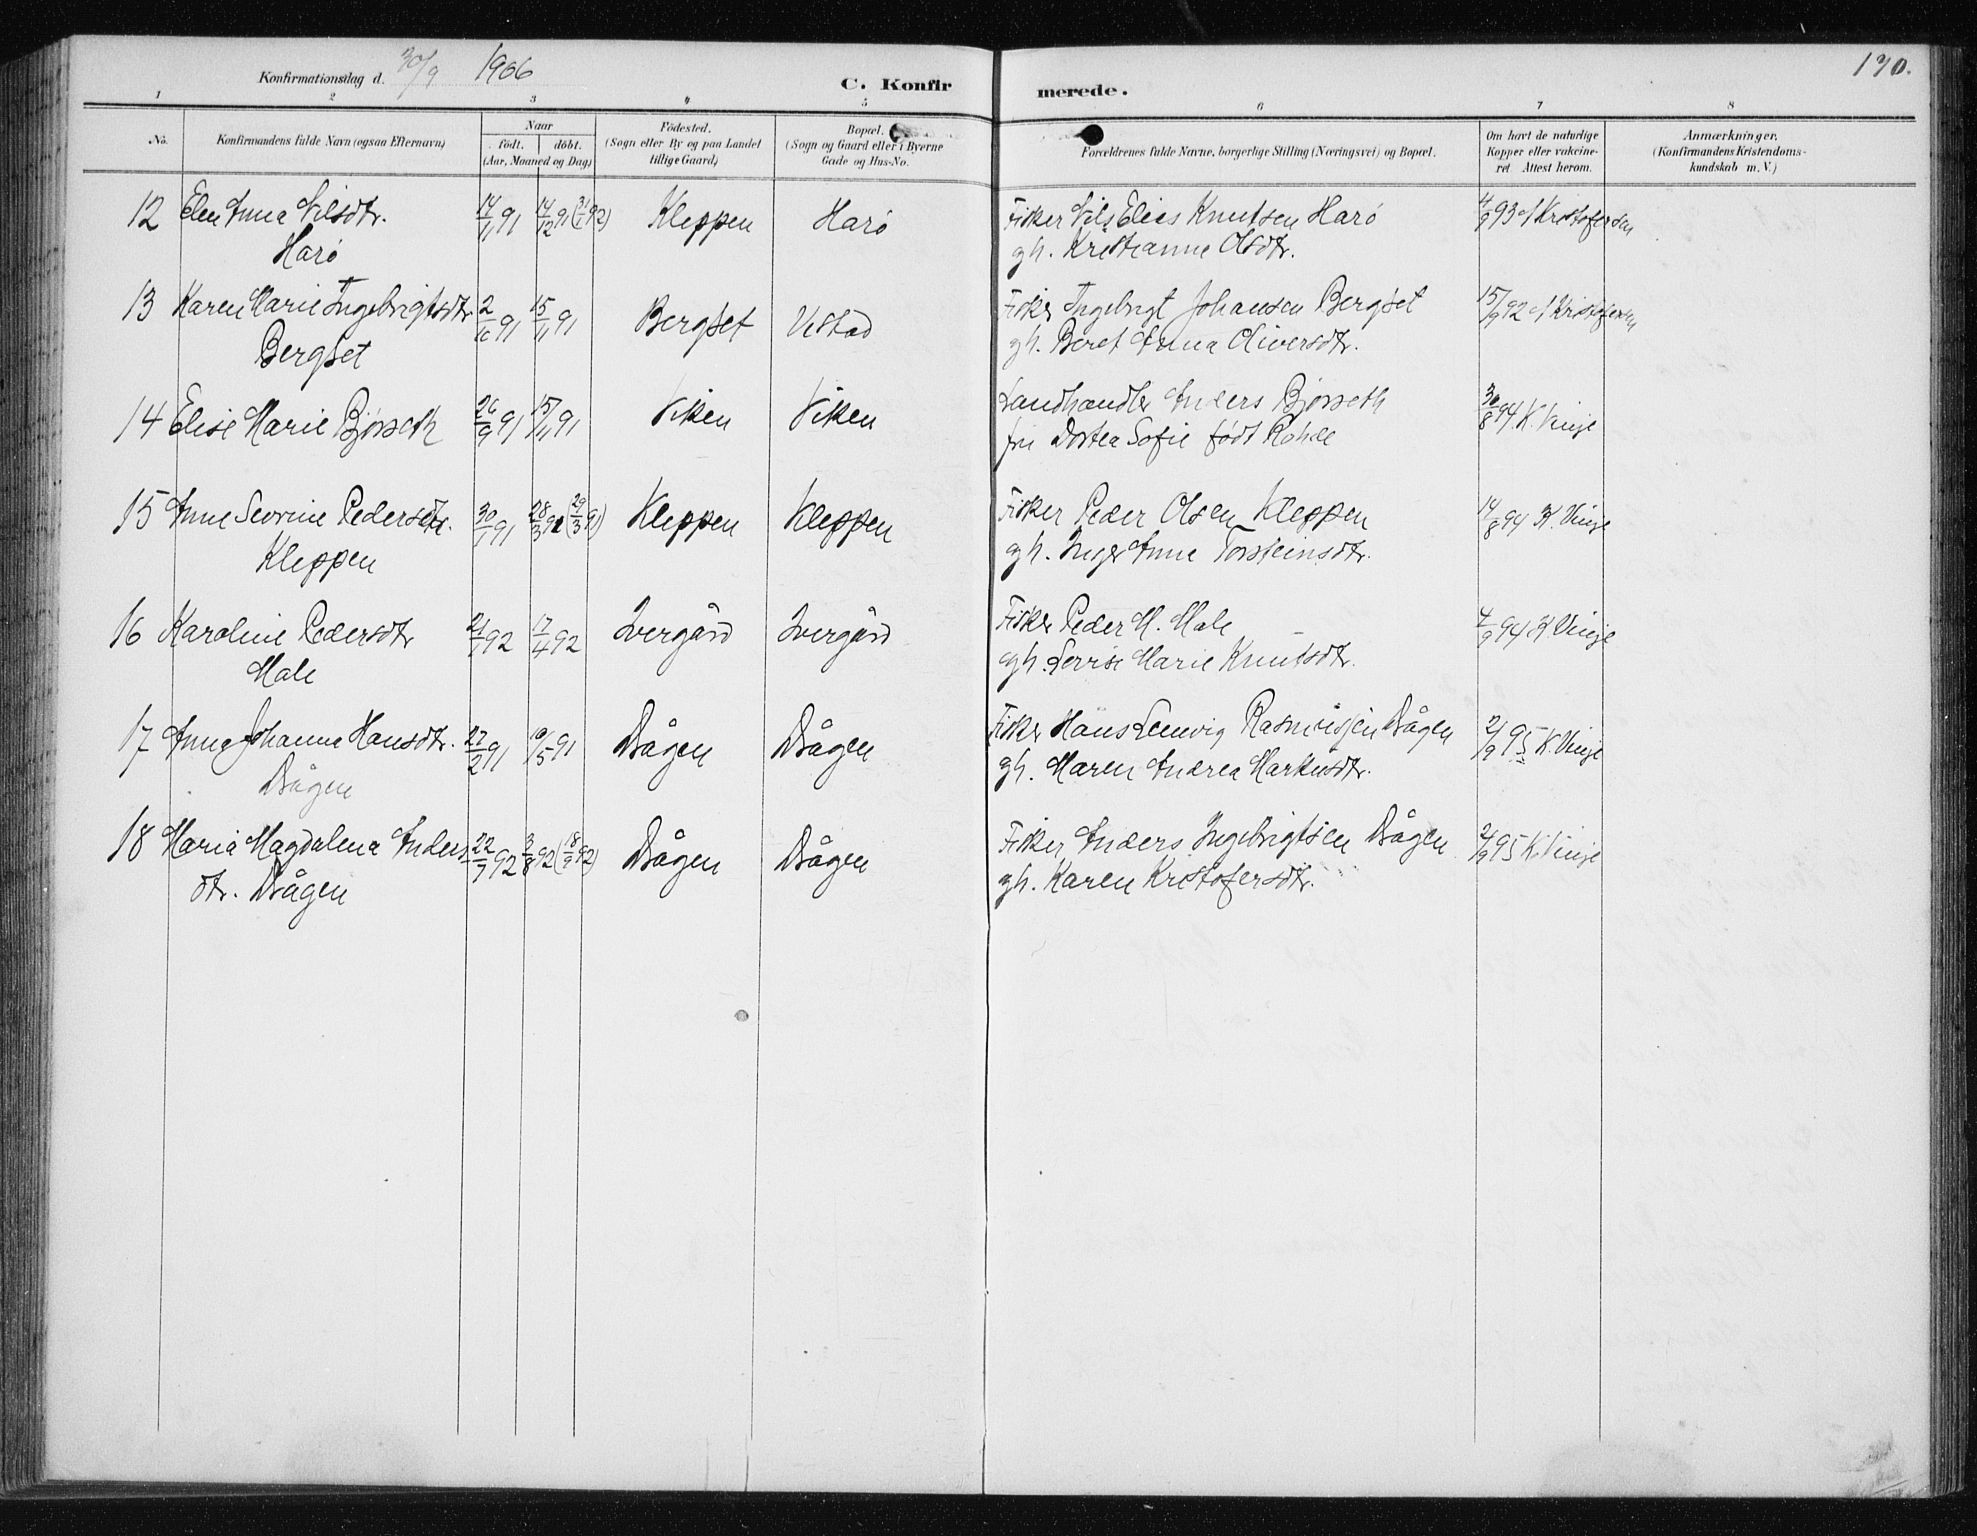 130.
Konfirmationsdag d. 30/9 1906
C. Konfirmerede.
1 2 3 4 5 6 7 8
No.
Konfirmandens fulde Navn (ogsaa Efternavn)
Naar
födt. döbt.
(Aar, Maaned og Dag)
Födested.
(Sogn eller By og paa Landet
tillige Gaard)
Bopæl.
(Sogn og Gaard eller i Byerne
Gade og Hus-No.
Forældrenes fulde Navne, borgerlige Stilling (Næringsvei) og Bopæl.
Om havt de naturlige
Kopper eller vakcine-
ret Attest herom.
Anmærkninger.
(Konfirmandens Kristendoms-
kundskab m. V.)
12 Elen Anna Nilsdtr. 14/11 91 14/12 91 Kleppen Harö Fisker Nils Elias Knutsen Harö 4/9 93 Kristofersen
Harö gh. Kristianne Olsdtr.
13 Karen Marie Ingebrigtsdtr 2/10 91 15/11 91 Bergset Vestad Fisker Ingebrigt Johansen Bergset 15/9 92 Kristofersen
Bergset gh. Beret Anna Oliversdtr.
14 Elise Marie Bjørseth 26/9 91 15/11 91 Viken Viken Landhandler Anders Bjørseth 30/8 94 K. Vinje
fru Dortea Sofie født Rohde
15 Anne Sevrine Pedersdtr. 30/1 91 28/3 91 (29/3 91) Kleppen Kleppen Fisker Peder Olsen Kleppen 14/8 94 K. Vinje
Kleppen gh. Inger Anne Torsteinsdtr.
16 Karoline Pedersdtr 21/1 92 17/4 92 Ivergård Ivergård Fisker Peder M. Male 4/9 94 K. Vinje
Male gh. Lovise Marie Knutsdtr.
17 Anna Johanne Hansdtr. 27/2 91 10/5 91 Drågen Drågen Fisker Hans Lenvig Rasmussen Drågen 2/9 95 K. Vinje
Drågen gh. Maren Andrea Markusdtr.
18 Maria Magdalena Anders 22/7 92 3/8 92 Drågen Drågen Fisker Anders Ingebrigtsen Drågen 2/9 95 K. Vinje
dtr. Drågen gh. Karen Kristofersdtr.